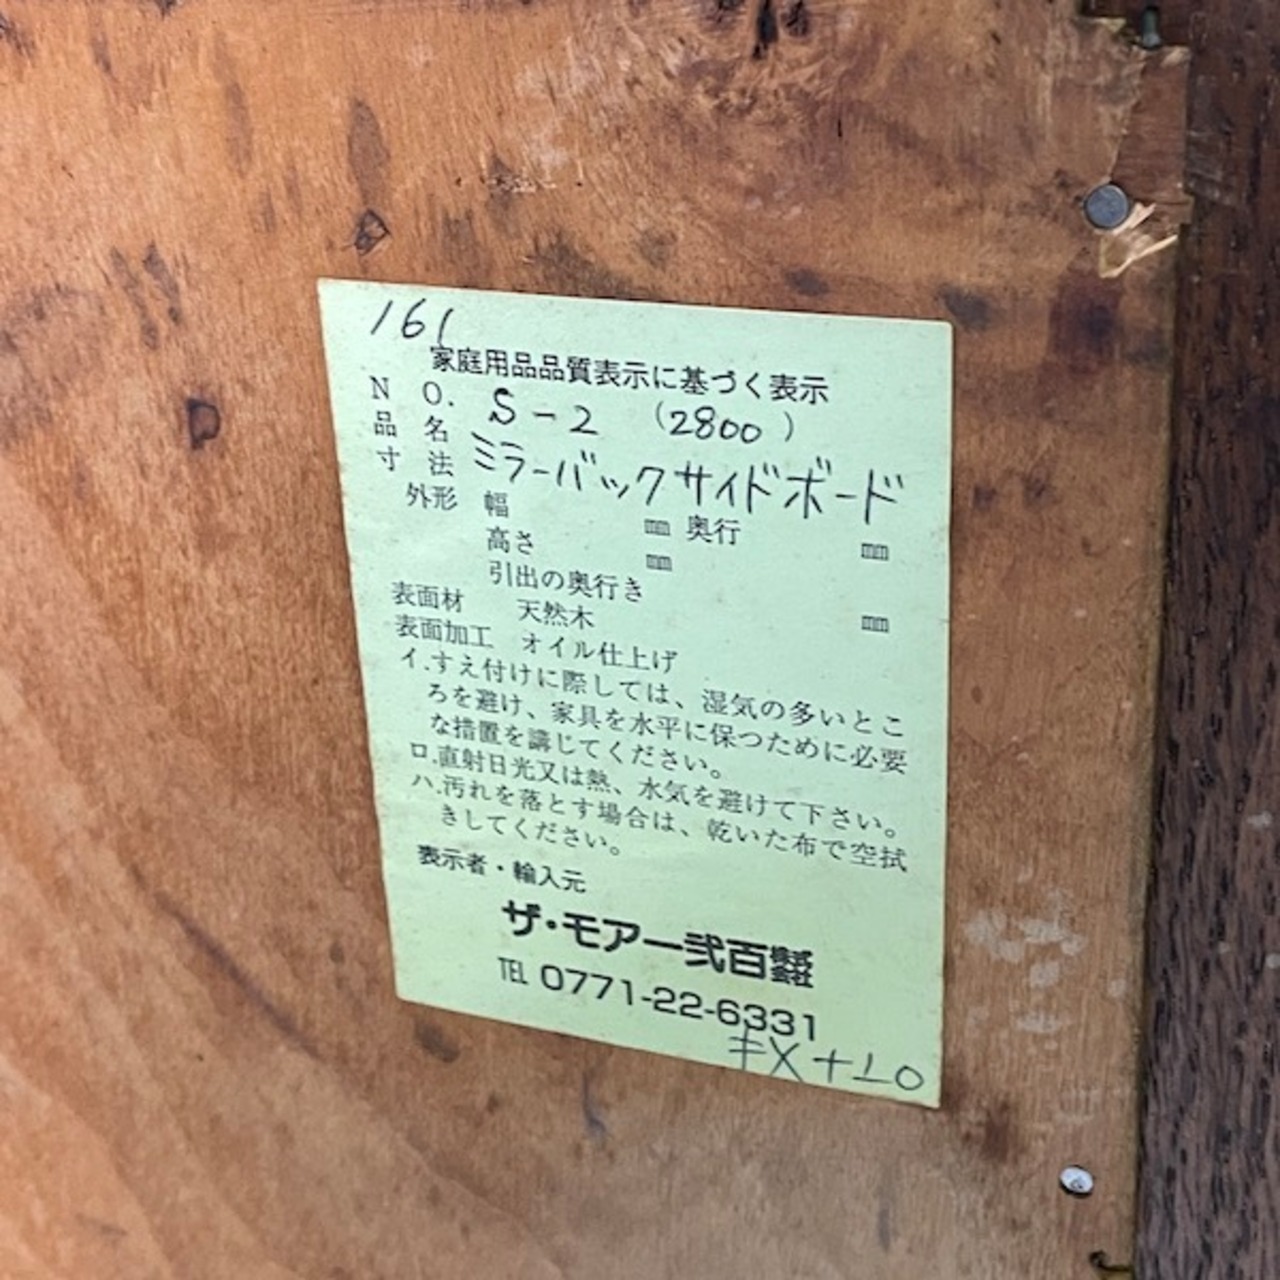 161
家庭用品品質表示に基づく表示
NO. S-2 (2800)
品名 ミラーバックサイドボード
寸法
外形 幅 mm 奥行 mm
高さ mm
引出の奥行き mm
表面材 天然木
表面加工 オイル仕上げ
イ.すえ付けに際しては、湿気の多いとこ
ろを避け、家具を水平に保つために必要
な措置を講じてください。
ロ.直射日光又は熱、水気を避けて下さい。
ハ.汚れを落とす場合は、乾いた布で空拭
きしてください。
表示者・輸入元
ザ・モアー弐百株式会社
TEL 0771-22-6331